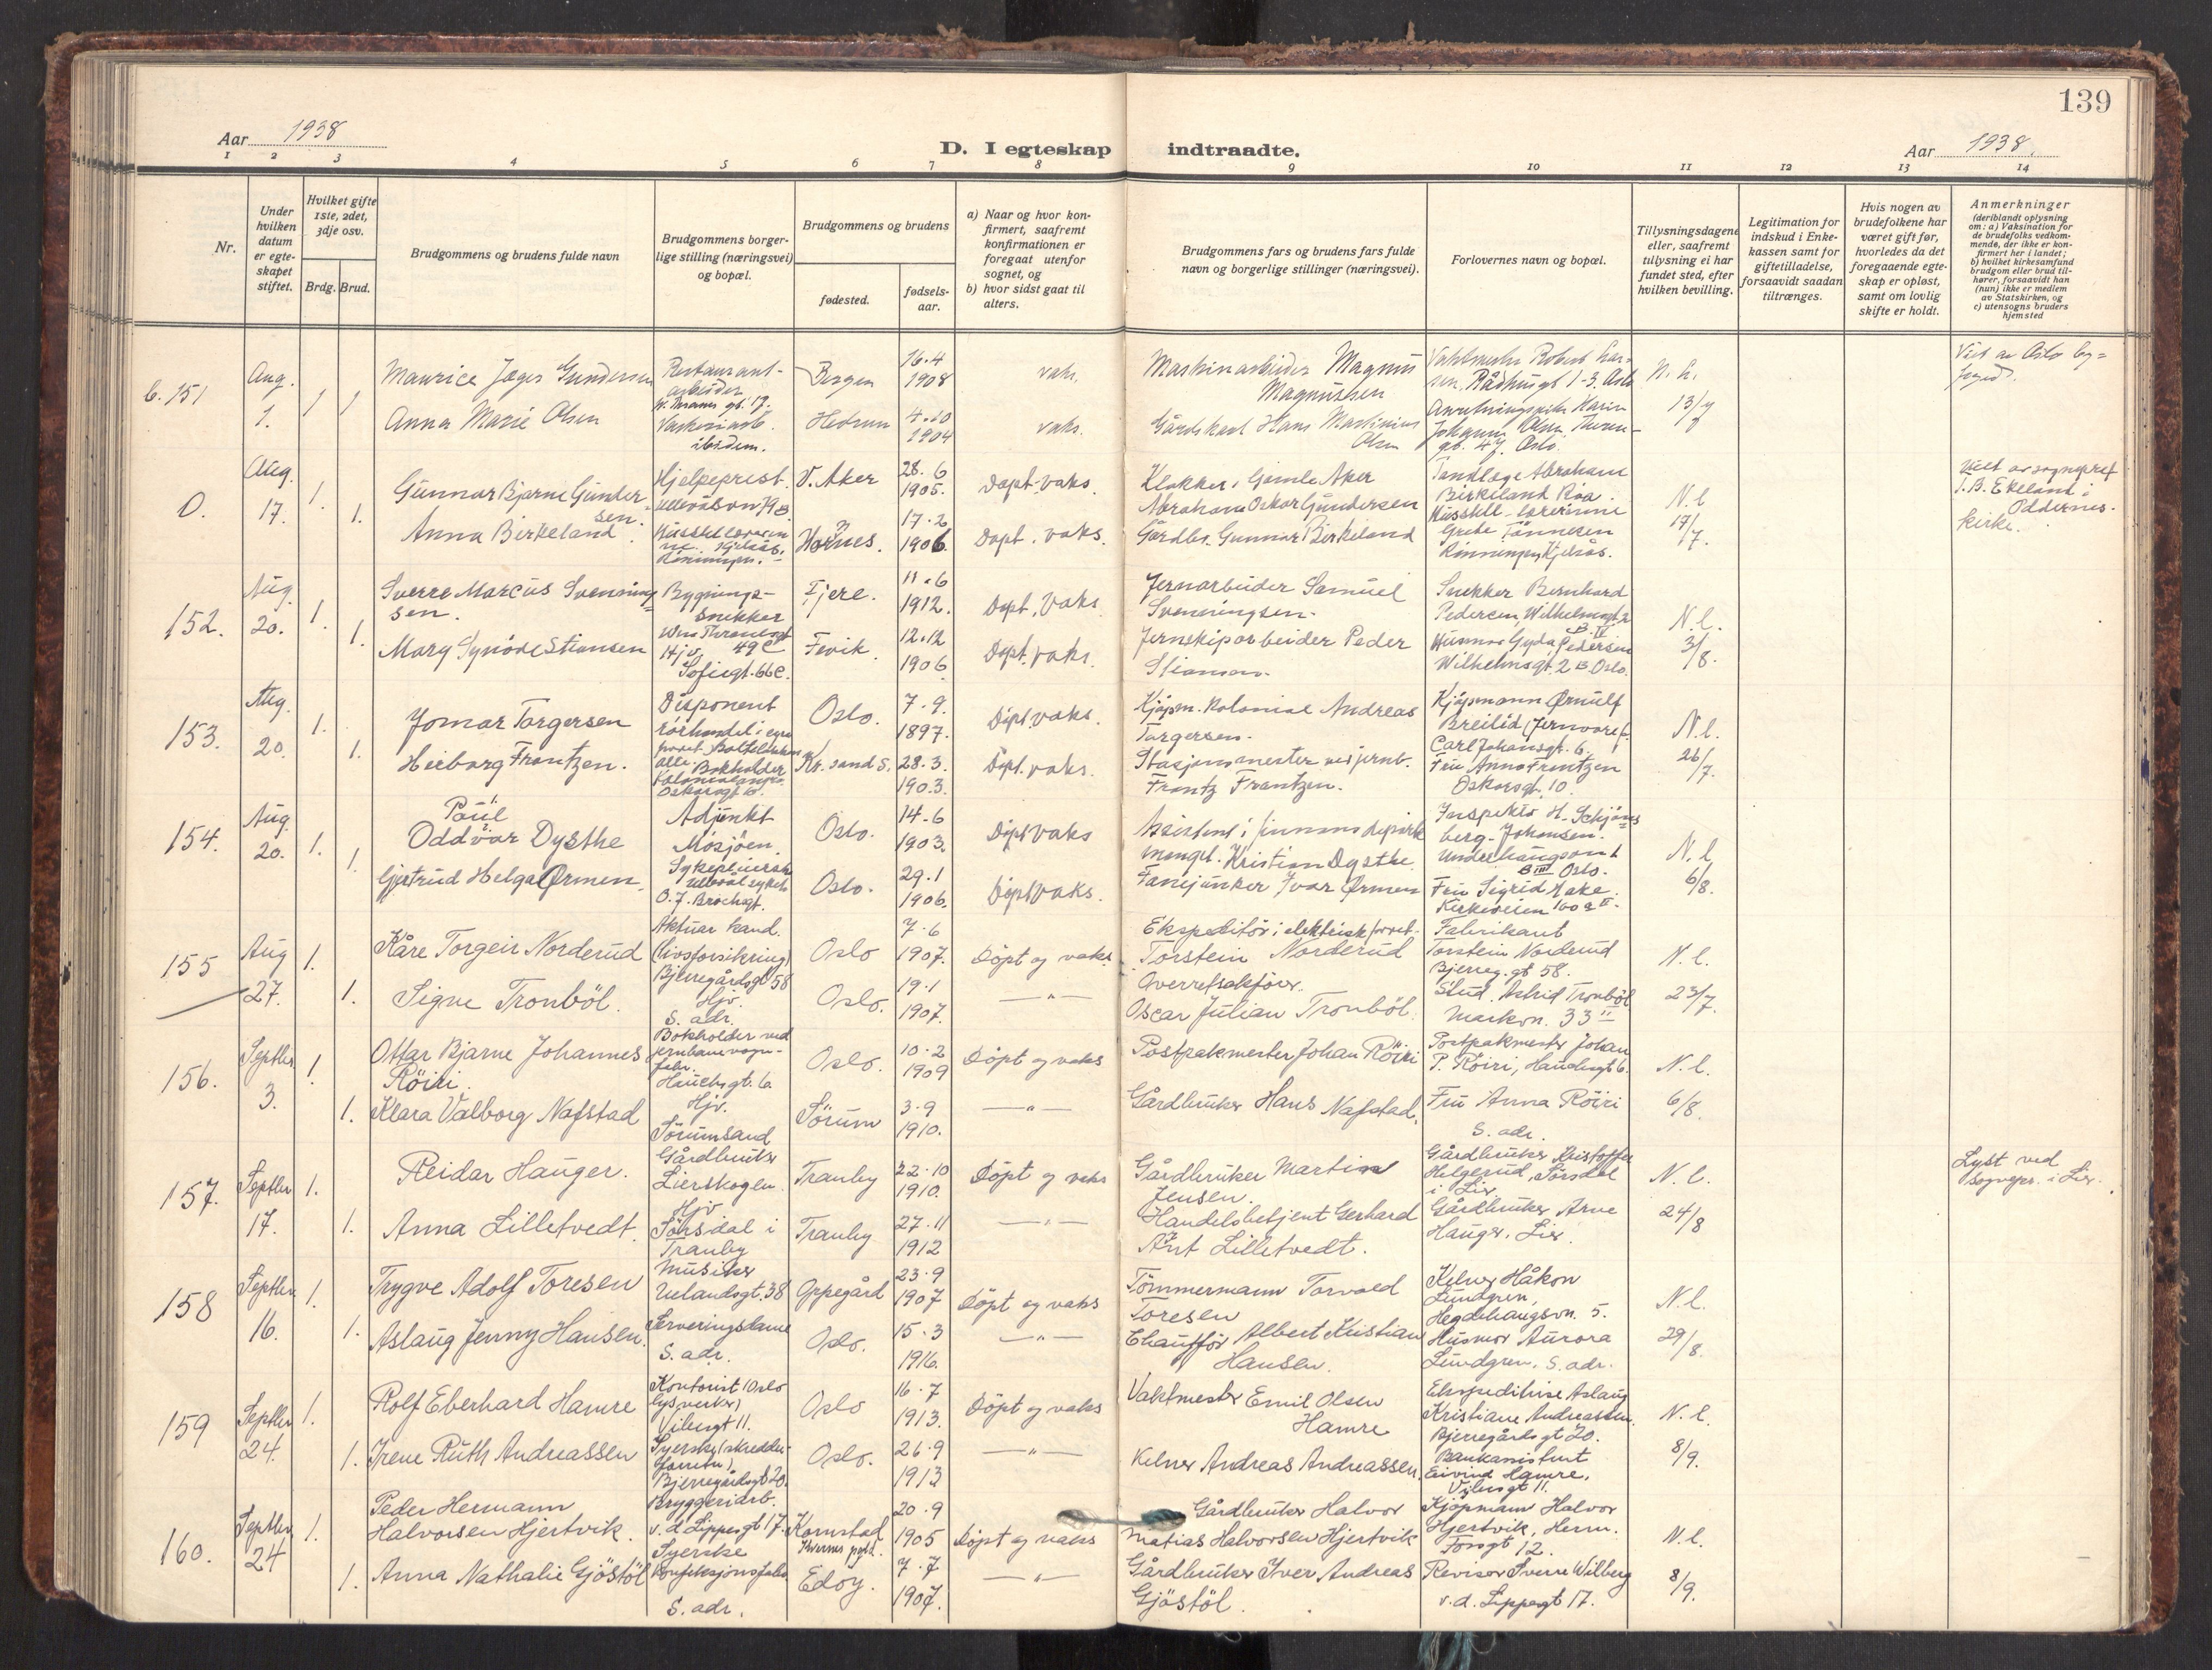 139
Aar 1938
D. I egteskap indtraadte.
Aar 1938.
1 2 3 4 5 6 7 8 9 10 11 12 13 14
Nr.
Under hvilken datum er egteskapet stiftet.
Hvilket gifte 1ste, 2det, 3dje osv.
Brdg. Brud.
Brudgommens og brudens fulde navn
Brudgommens borgerlige stilling (næringsvei) og bopæl.
Brudgommens og brudens
fødested.
fødselsaar.
a) Naar og hvor konfirmert, saafremt konfirmationen er foregaat utenfor sognet, og
b) hvor sidst gaat til alters.
Brudgommens fars og brudens fars fulde navn og borgerlige stillinger (næringsvei).
Forlovernes navn og bopæl.
Tillysningsdagene eller, saafremt tillysning ei har fundet sted, efter hvilken bevilling.
Legitimation for indskud i Enkekassen samt for giftetilladelse, forsaavidt saadan tiltrænges.
Hvis nogen av brudefolkene har været gift før, hvorledes da det foregaaende egteskap er opløst, samt om lovlig skifte er holdt.
Anmerkninger (deriblandt oplysning om: a) Vaksination for de brudefolks vedkommende, der ikke er konfirmert her i landet; b) hvilket kirkesamfund brudgom eller brud tilhører, forsaavidt han (hun) ikke er medlem av Statskirken, og c) utensogns bruders hjemsted
b. 151
Aug. 1.
1 1
Maurice Jæger Gundersen
Restaurant-
arbeider
W. Thranes gt. 17.
Bergen
16.4
1908
vaks.
Maskinarbeider Magnus
Magnussen
Vaktmester Robert Lar-
sen, Rådhusgt 1-3. Oslo
N. L.
13/7
Viet av Oslo by=
foged.
Anna Marie Olsen
ibidem.
Hedrum
4.10
1904
vaks.
Gårdskarl Hans Martinius
Olsen
Johanne Olsen
gt. 47. Oslo.
0.
Aug.
17.
1. 1.
Gunnar Bjarne Gunder-
sen.
Hjelpeprest.
Ullevålsvn 79 B.
V. Aker
28. 6
1905.
Døpt-vaks.
Klokker i Gamle Aker
Abraham Oskar Gundersen
Tandlæge Abraham
Birkeland Roa.
N.l
17/7.
Viet av sogneprest
T.B. Ekeland i
Oddernes
kirke.
Anna Birkeland.
Hornnes.
17.2
1906.
Døpt. vaks.
Gårdbr. Gunnar Birkeland
Husstell-lærerinne
Grete Tønnesen
Kjelsås.
152.
Aug.
20.
1. 1.
Sverre Marcus Svenning=
sen.
Bygnings-
snekker
49 C
Fjære.
11.6
1912.
Døpt. Vaks
Jernarbeider Samuel
Svenningsen.
Snekker Bernhard
Pedersen, Wilhelmsgt 2
B. IV
N.l.
3/8.
Mary Synøve Stiansen
Hjv.
Sofiegt. 66 C.
Fevik.
12.12
1906
Døpt. vaks.
Jernskiparbeider Peder
Stiansen.
Husmor Gyda Pedersen
Wilhelmsgt. 2 B Oslo.
153.
Aug.
20.
1. 1.
Jomar Torgersen
Disponent
Oslo.
7.9.
1897.
Døpt. vaks.
Kjøpm. Kolonial Andreas
Torgersen.
Kjøpmann Ørnulf
Breilid (Jernvaref.
Carl Johansgt. 6.
N.l.
26/7.
Heiborg Frantzen.
Bokholder
Oskarsgt. 10.
Kr. sand S.
28.3.
1903.
Døpt. vaks.
Stasjonsmester ved jernb.
Frantz Frantzen.
Fru Anna Frantzen
Oskarsgt. 10.
154.
Aug.
20.
1. 1.
Paul
Oddvar Dysthe
Adjunkt
Mosjøen
Oslo.
14.6
1903.
Døpt Vaks
Assistent i finansdeparte
mengt. Kristian Dysthe
Inspektør H. Schjøns
berg-Johansen.
B III Oslo.
N.l
6/8.
Gjertrud Helga Ørmen.
Sykepleierske
Ullevål sykeh.
O.J. Brochsgt.
Oslo.
29.1
1906.
Døpt Vaks.
Fanejunker Ivar Ørmen
Fru Sigrid Hake.
Kirkeveien 160 a II.
155
Aug
27.
1. 1.
Kåre Torgeir Norderud
Aktuar kand.
(livsforsikring)
Bjerregårdsgt 58
Oslo
7.6
1907.
Døpt og vaks.
Ekspeditør i elektrisk forret.
Torstein Norderud
Fabrikant
Torstein Norderud
Bjerreg. gt 58.
N.l.
23/7.
Signe Tronbøl.
Hjv.
S. adr.
Oslo.
19.1
1907.
— " —
Overrefsakfører.
Oscar Julian Tronbøl.
Stud. Astrid Tronbøl
Markvn. 33 II
156.
Septbr
3.
1. 1.
Ottar Bjarne Johannes
Røiri.
Bokholder ved
jernbanevogn-
fabr.
Hauchsgt. 6
Oslo.
10.2
1909
Døpt og vaks
Postpakmester Johan Røiri
Postpakmester Johan
P. Røiri, Hauchsgt 6.
N.l.
6/8.
Klara Valborg Nafstad
Hjv.
Sørumsand
Sørum
3.9
1910.
— " —
Gårdbruker Hans Nafstad.
Fru Anna Røiri
S. adr.
157.
Septbr
17.
1. 1.
Reidar Hauger.
Gårdbruker
Lierskogen.
Tranby
22.10
1910.
Døpt og vaks
Gårdbruker Martin
Jensen.
Gårdbruker Kristoffer
Helgerud, Sørsdal
i Lier.
N.l.
24/8
Lyst ved
sognepr. i Lier.
Anna Lilletvedt.
Hjv
Sørsdal i
Tranby
Tranby
27.11
1912
— " —
Handelsbetjent Gerhard
Ant Lilletvedt.
Gårdbruker Arne
Hauger, Lier.
158
Septbr.
16.
1. 1.
Trygve Adolf Toresen
Musiker
Uelandsgt. 38
Oppegård
23.9
1907
Døpt og vaks
Tømmermann Torvald
Toresen
Kelner Håkon
Lundgren,
Hegdehaugsvn. 5.
N.l.
29/8.
Aslaug Jenny Hansen.
Serveringsdame
S. adr.
Oslo.
15.3
1916.
— " —
Chauffør Albert Kristian
Hansen.
Husmor Aurora
Lundgren, S. adr.
159
Septbr
24.
1. 1.
Rolf Eberhard Hamre
Kontorist (Oslo
lysverker)
Vibesgt 11.
Oslo
16.7
1913.
Døpt og vaks
Vaktmester Emil Olsen
Hamre
Ekspeditrise Aslaug
Kristiane Andreassen.
Bjerregårdsgt 20.
N.l.
8/9.
Irene Ruth Andreassen
Syerske (skredder-
forretn.),
Bjerregårdsgt 20.
Oslo.
26.9
1913
— " —
Kelner Andreas Andreassen.
Bankassistent
Eivind Hamre,
Vibesgt 11.
160.
Septbr.
24
1. 1.
Peder Hermann
Halvorsen Hjertvik.
Bryggeriarb.
v. d. Lippesgt 17.
Kornstad
Kvernes pgld.
20.9
1905
Døpt og vaks
Gårdbruker Halvor
Matias Halvorsen Hjertvik
Kjøpmann Halvor
Hjertvik, Herm.
Fossgt 12.
N.l.
8/9.
Anna Nathalie Gjøstøl
Syerske
Konfeksjonsfabr.
S. adr.
Edøy.
7.7
1907.
— " —
Gårdbruker Iver Andreas
Gjøstøl.
Revisor Sverre Wilberg
v. d. Lippesgt 17.